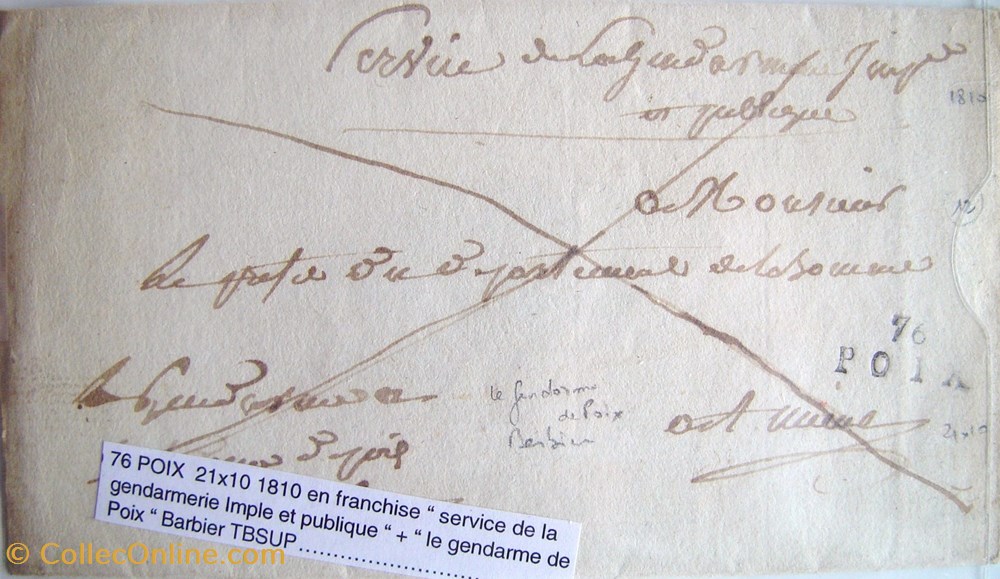 Service de la Gendarmerie Imple
et publique
1810
A Monsieur
(12)
Le prefet du departement de la Somme
76
POIX
le gendarme
de Poix
Barbier
a Amiens
21x10
76 POIX 21x10 1810 en franchise “ service de la
gendarmerie Imple et publique “ + “ le gendarme de
Poix “ Barbier TBSUP
© CollecOnline.com